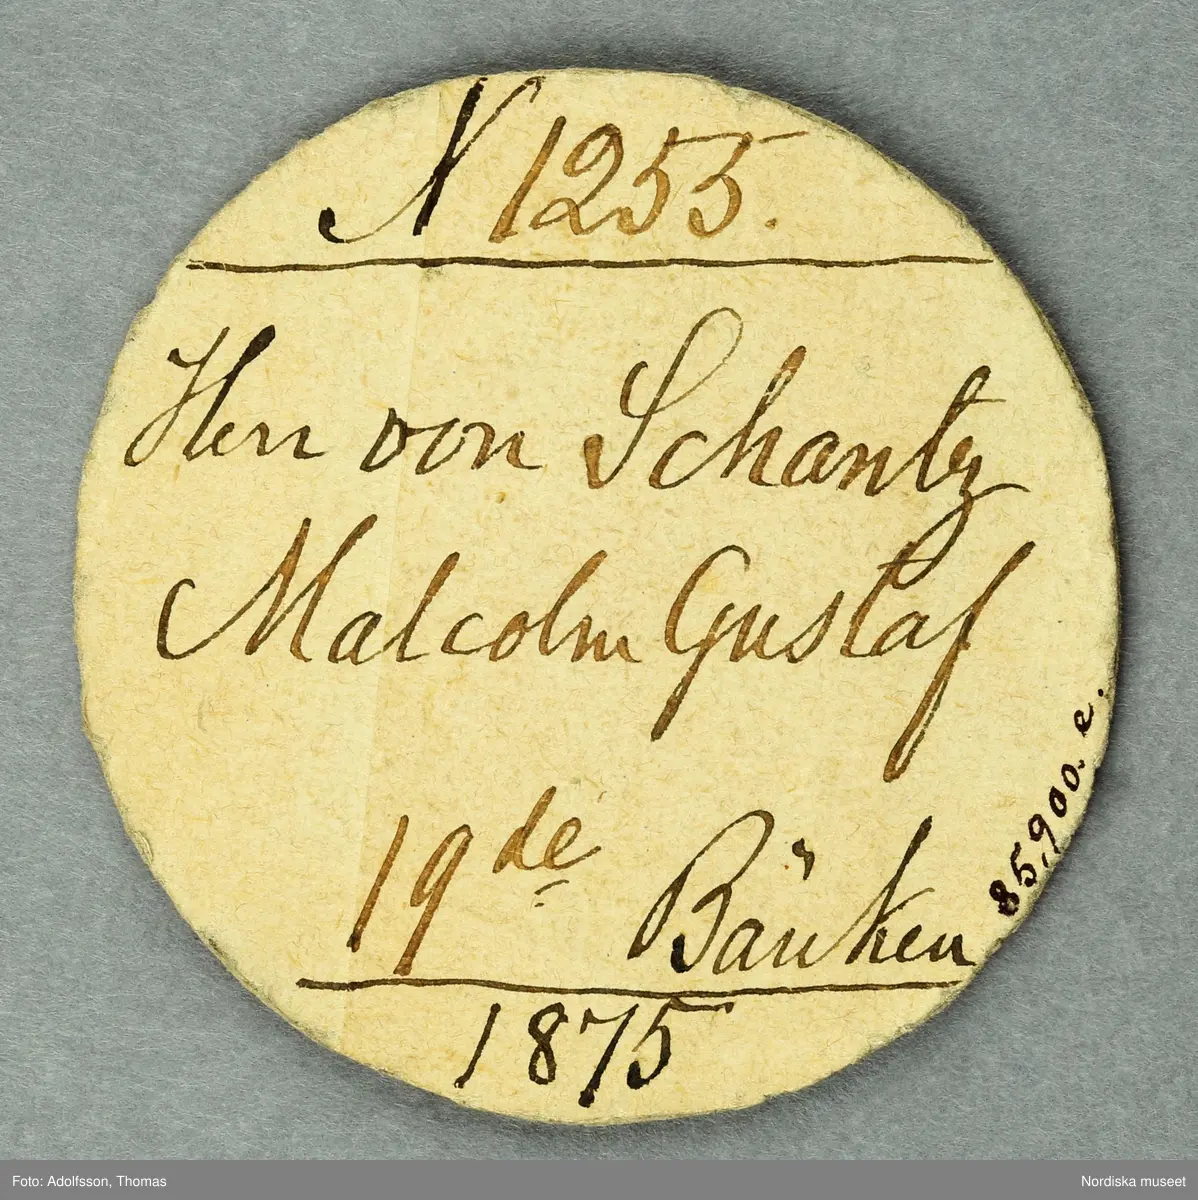 N 1255.
Herr von Schantz
Malcolm Gustaf
19de Bänken
1875
85,900.e.
Foto: Adolfsson, Thomas
Nordiska museet